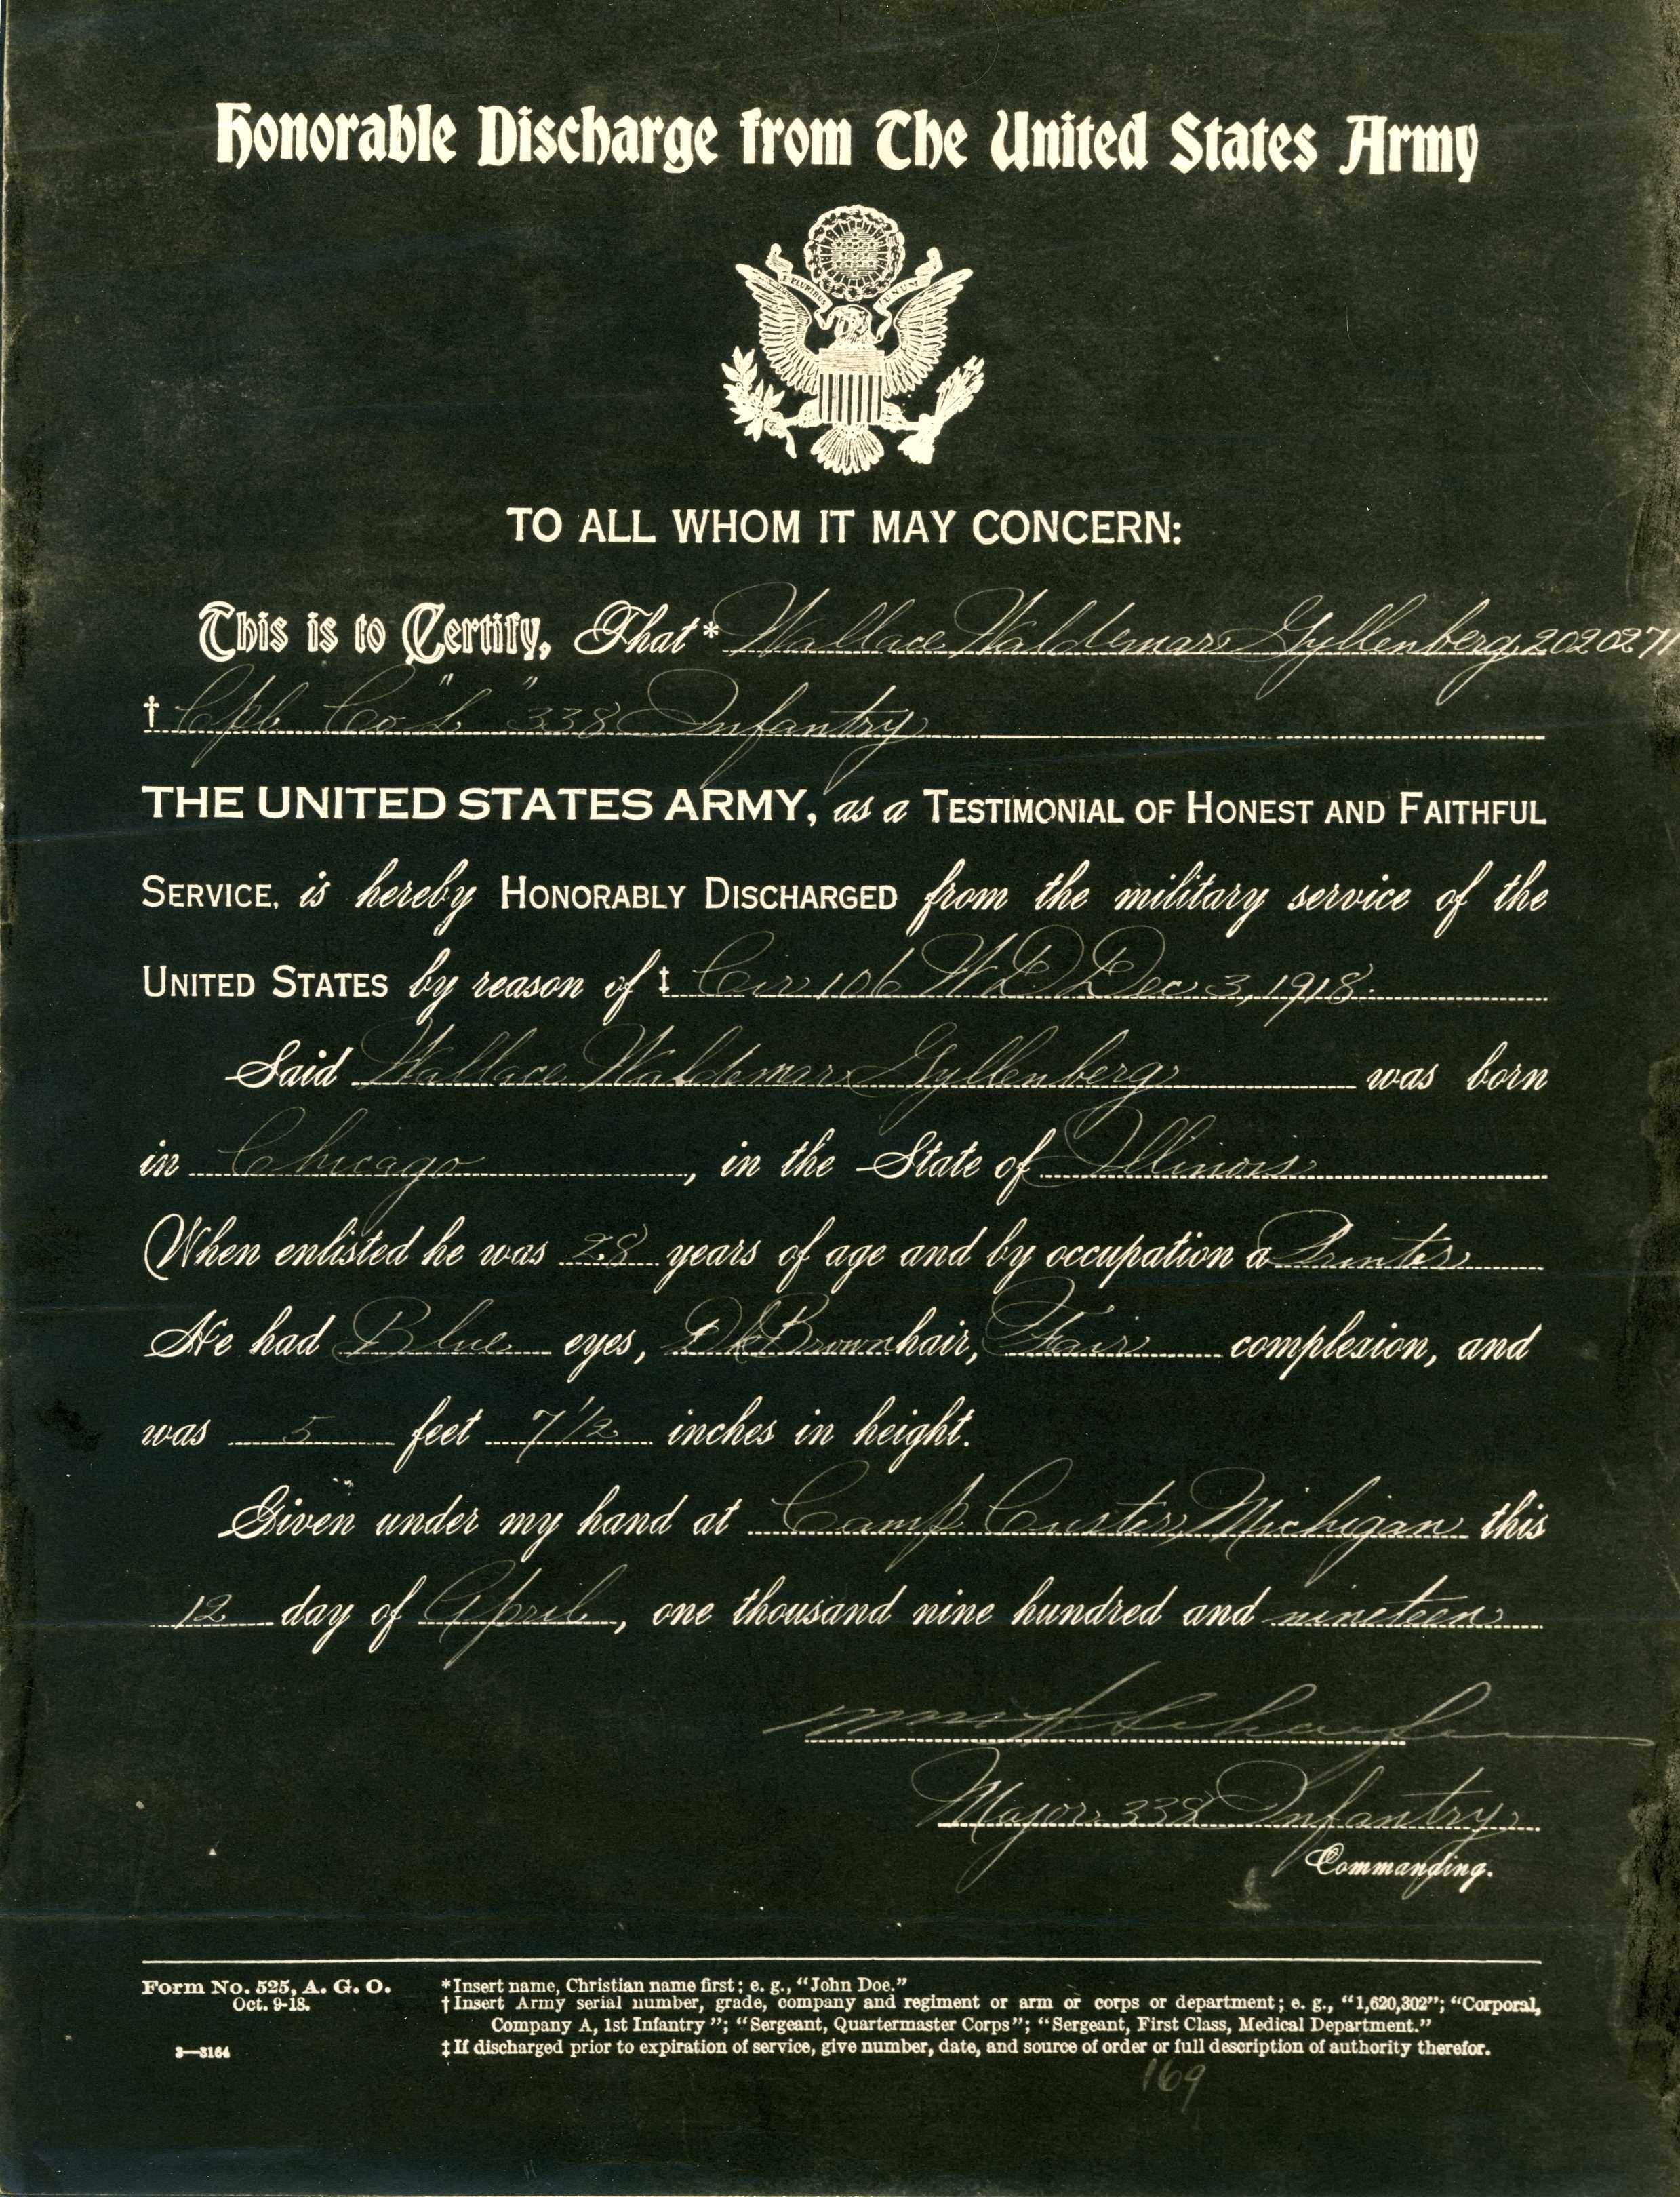 Honorable Discharge from The United States Army
E PLURIBUS UNUM
TO ALL WHOM IT MAY CONCERN:
This is to Certify, That * Wallace Waldemar Gyllenberg, 202027
† Cpl. Co "L" 338 Infantry
THE UNITED STATES ARMY, as a TESTIMONIAL OF HONEST AND FAITHFUL
SERVICE, is hereby HONORABLY DISCHARGED from the military service of the
UNITED STATES by reason of ‡ Cir 106 W.D. Dec 3, 1918.
Said Wallace Waldemar Gyllenberg was born
in Chicago, in the State of Illinois
When enlisted he was 28 years of age and by occupation a Printer
He had Blue eyes, Dk Brown hair, Fair complexion, and
was 5 feet 7 1/2 inches in height.
Given under my hand at Camp Custer, Michigan this
12 day of April, one thousand nine hundred and nineteen
Major 338 Infantry
Commanding.
Form No. 525, A. G. O. *Insert name, Christian name first; e. g., "John Doe."
Oct. 9-18. †Insert Army serial number, grade, company and regiment or arm or corps or department; e. g., "1,620,302"; "Corporal,
Company A, 1st Infantry"; "Sergeant, Quartermaster Corps"; "Sergeant, First Class, Medical Department."
3—3164 ‡If discharged prior to expiration of service, give number, date, and source of order or full description of authority therefor.
169